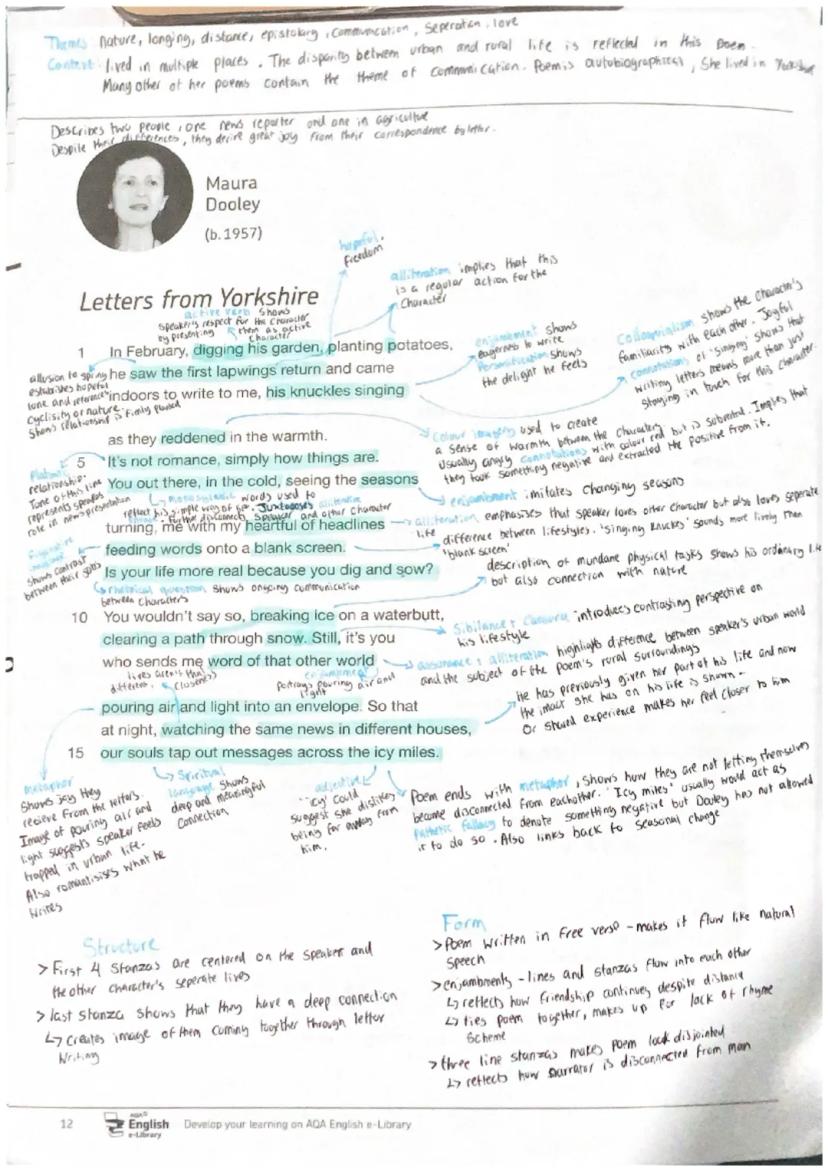 Themes: nature, longing, distance, epistolary, communication, seperation, love
Context: lived in multiple places. The disparity between urban and rural life is reflected in this poem.
Many other of her poems contain the theme of communication. Poem is autobiographical, she lived in Yorkshire
Describes two people, one news reporter and one in agriculture
Despite their differences, they derive great joy from their correspondence by letter.
Maura
Dooley
(b. 1957)
hopeful,
freedom
alliteration implies that this
is a regular action for the
character
Letters from Yorkshire
active verb shows
speaker's respect for the character
by presenting them as active
character
1 In February, digging his garden, planting potatoes,
he saw the first lapwings return and came
indoors to write to me, his knuckles singing
allusion to spring
establishes hopeful
tone and references
cyclisity of nature.
Shows relationship is firmly planted
enjambment shows
eagerness to write
Personification shows
the delight he feels
Colloquialism shows the character's
familiarity with each other. Joyful
connotations of 'singing' shows that
writing letters means more than just
staying in touch for this character.
as they reddened in the warmth.
5 It's not romance, simply how things are.
You out there, in the cold, seeing the seasons
Colour imagery used to create
a sense of warmth between the characters
usually angry connotations with colour red but is subverted. Implies that
they took something negative and extracted the positive from it.
Platonic
relationship.
Tone of this line
represents speakers
role in news presentation
monosyllabic words used to
reflect his simple way of life. Juxtaposes alliterative
phrase - further disconnects speaker and other character
enjambment imitates changing seasons
turning, me with my heartful of headlines
feeding words onto a blank screen.
Is your life more real because you dig and sow?
alliteration emphasises that speaker loves other character but also loves seperate
life
difference between lifestyles. 'Singing knuckes' sounds more lively than
'blank screen'
shows contrast
between their jobs
rhetorical question shows ongoing communication
between characters
description of mundane physical tasks shows his ordinary life
but also connection with nature
10 You wouldn't say so, breaking ice on a waterbutt,
clearing a path through snow. Still, it's you
who sends me word of that other world
Sibilance + caesura introduces contrasting perspective on
his lifestyle
assonance + alliteration highlights difference between speaker's urban world
and the subject of the poem's rural surroundings
lives aren't that
different, (closeness)
enjambment
portrays pouring air and
light
pouring air and light into an envelope. So that
at night, watching the same news in different houses,
15 our souls tap out messages across the icy miles.
He has previously given her part of his life and now
the impact she has on his life is shown -
Or shared experience makes her feel closer to him
metaphor
Shows joy they
recieve from the letters.
Image of pouring air and
light suggests speaker feels
trapped in urban life.
Also romantisises what he
writes
Spiritual
language shows
deep and meaningful
connection
adjective
'icy' could
suggest she dislikes
being far away from
him.
Poem ends with metaphor, shows how they are not letting themselves
become disconnected from eachother. 'Icy miles' usually would act as
pathetic fallacy to denote something negative but Dooley has not allowed
it to do so. Also links back to seasonal change
Structure
> First 4 stanzas are centered on the speaker and
the other character's seperate lives
> last stanza shows that they have a deep connection
↳ creates image of them coming together through letter
writing
Form
> Poem written in free verse - makes it flow like natural
speech
> enjambments - lines and stanzas flow into each other
↳ reflects how friendship continues despite distance
↳ ties poem together, makes up for lack of rhyme
scheme
> three line stanzas makes poem look disjointed
↳ reflects how narrator is disconnected from man
12 AQA English e-Library Develop your learning on AQA English e-Library